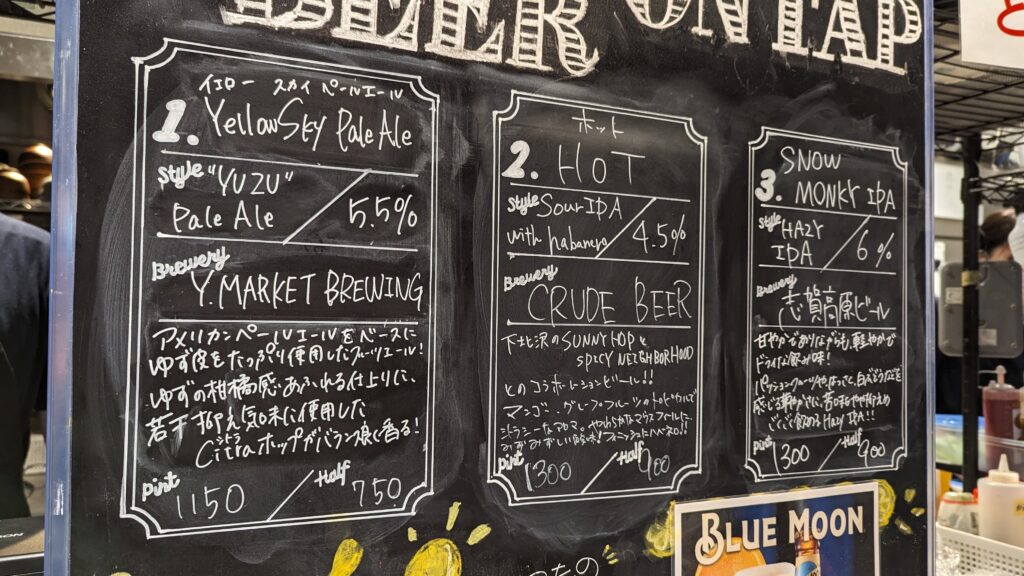 BEER ON TAP
イエロー スカイ ペールエール
1. Yellow Sky Pale Ale
Style "YUZU"
Pale Ale / 5.5%
Brewery
Y.MARKET BREWING
アメリカンペールエールをベースに
ゆず皮をたっぷり使用したフルーツエール!
ゆずの柑橘感あふれる仕上りに、
若干抑え気味に使用した
シトラ
Citraホップがバランス良く香る!
Pint 1150 / Half 750
ホット
2. HOT
Style Sour IPA
with habanero / 4.5%
Brewery
CRUDE BEER
下北沢のSUNNY HOP &
SPICY NEIGHBORHOOD
とのコラボレーションビール!!
マンゴー、グレープフルーツの
ジューシーなアロマ。やわらかなマウスフィールに
Pint 1300 / Half 900
SNOW
3. MONKY IPA
Style HAZY
IPA / 6%
Brewery
志賀高原ビール
甘やかでありながらも、軽やかで
ドライな飲み味!
パッションフルーツ
HAZY IPA!!
Pint 1300 / Half 900
BLUE MOON